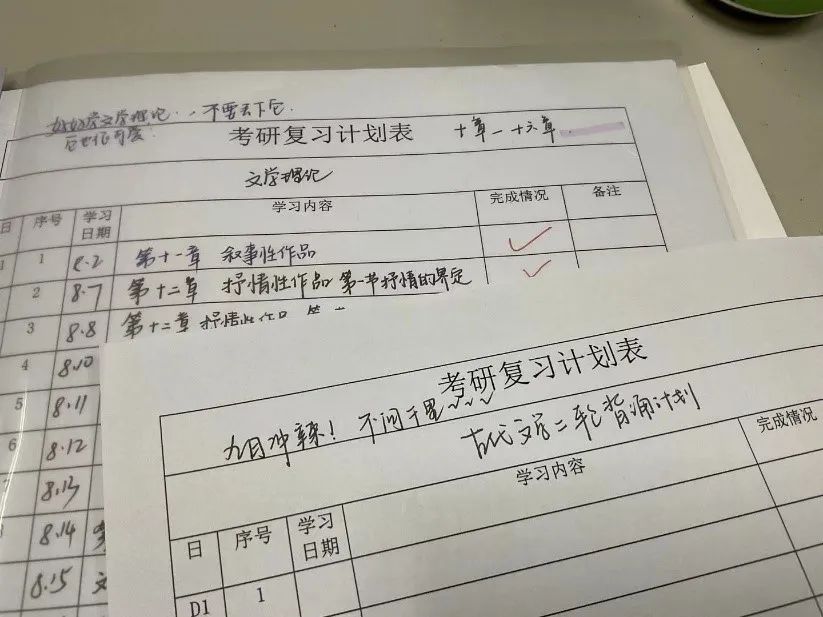 好好学文学理论，不要丢下它.
它也很可爱.
考研复习计划表 十章一十六章
文学理论
日 序号 学习日期 学习内容 完成情况 备注
1 1 8.2 第十一章 叙事性作品
2 8.7 第十二章 抒情性作品 第一节抒情的界定
3 8.8 第十二章 抒情性作品 第
4 8.10
5 8.11
6 8.12
8.13
8.14
8.15 文
考研复习计划表
九月冲辣！不问千里~~~
古代文学二轮背诵计划
日 序号 学习日期 学习内容 完成情况
D1 1